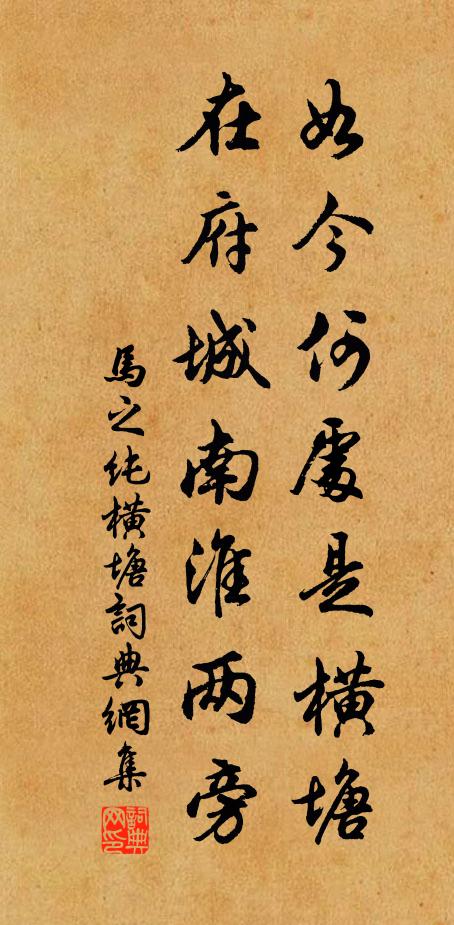 如今何處是橫塘
在府城南淮两旁
馬之純橫塘詞典網集
詞典网印